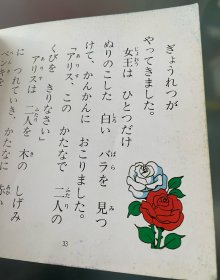 ぎょうれつが
やってきました。
女王は ひとつだけ
じょおう
ぬりのこした 白い バラを 見つ
しろ
ばら
み
けて、かんかんに おこりました。
「アリス、この かたなで 二人の
ありす
ふたり
くびを きりなさい」
アリスは 二人を 木の しげみ
ありす
ふたり
き
に つれていき、かたなに
ペンキを
33